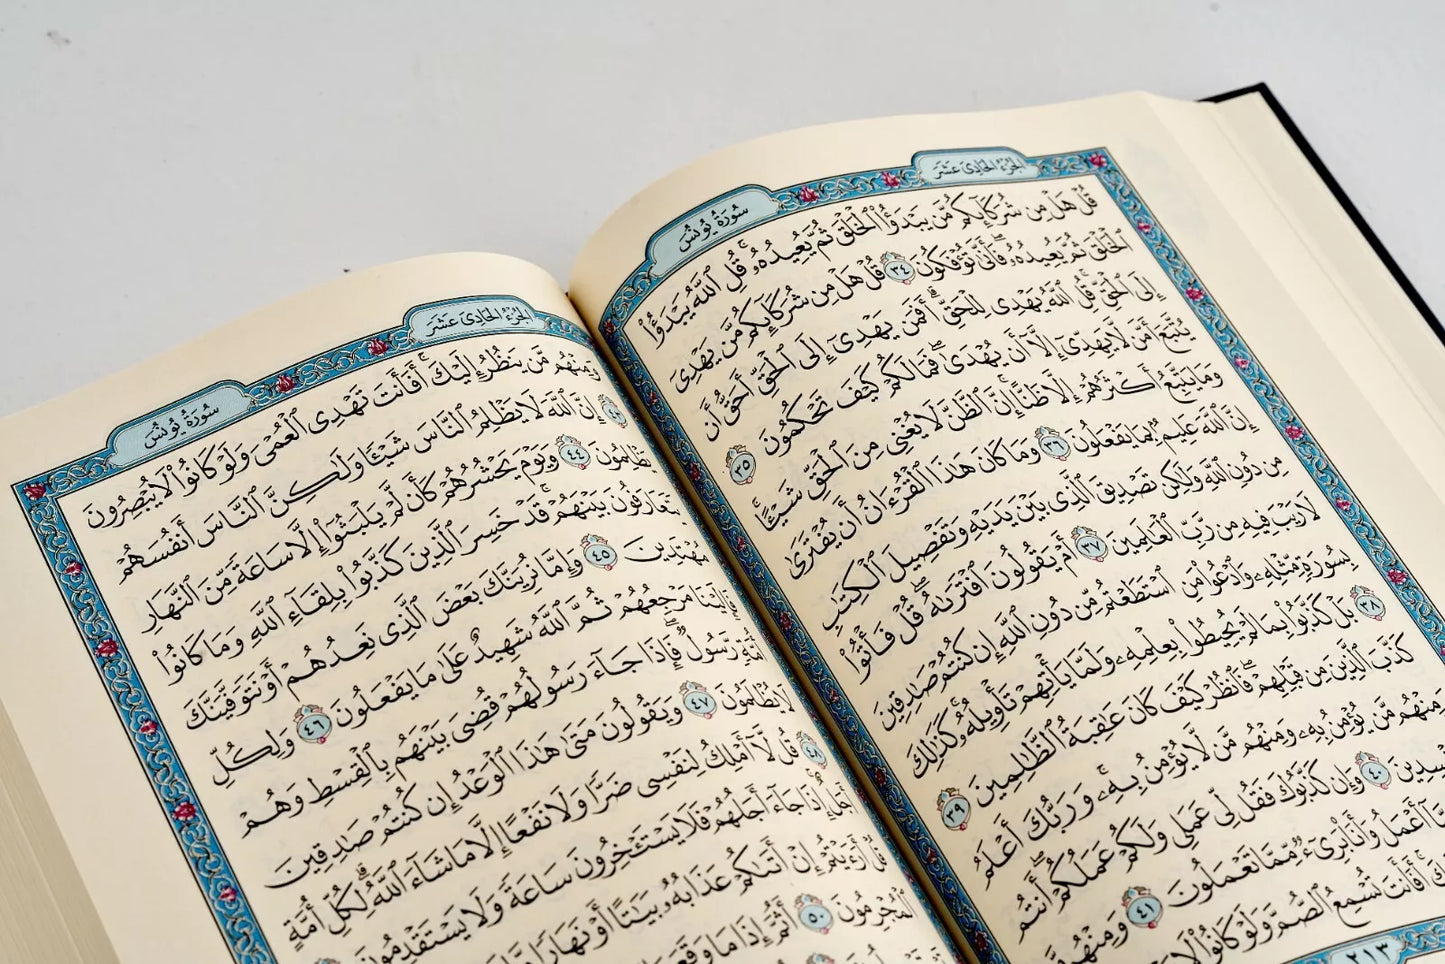 الجزء الحادى عشر
سورة يونس
قُلْ هَلْ مِن شُرَكَآئِكُم مَّن يَبْدَؤُاْ ٱلْخَلْقَ ثُمَّ يُعِيدُهُۥۚ قُلِ ٱللَّهُ يَبْدَؤُاْ
ٱلْخَلْقَ ثُمَّ يُعِيدُهُۥۖ فَأَنَّىٰ تُؤْفَكُونَ ٣٤ قُلْ هَلْ مِن شُرَكَآئِكُم مَّن يَهْدِىٓ
إِلَى ٱلْحَقِّۚ قُلِ ٱللَّهُ يَهْدِى لِلْحَقِّۗ أَفَمَن يَهْدِىٓ إِلَى ٱلْحَقِّ أَحَقُّ أَن
يُتَّبَعَ أَمَّن لَّا يَهِدِّىٓ إِلَّآ أَن يُهْدَىٰۖ فَمَا لَكُمْ كَيْفَ تَحْكُمُونَ ٣٥
وَمَا يَتَّبِعُ أَكْثَرُهُمْ إِلَّا ظَنًّاۚ إِنَّ ٱلظَّنَّ لَا يُغْنِى مِنَ ٱلْحَقِّ شَيْـًٔاۚ
إِنَّ ٱللَّهَ عَلِيمٌۢ بِمَا يَفْعَلُونَ ٣٦ وَمَا كَانَ هَٰذَا ٱلْقُرْءَانُ أَن يُفْتَرَىٰ
مِن دُونِ ٱللَّهِ وَلَٰكِن تَصْدِيقَ ٱلَّذِى بَيْنَ يَدَيْهِ وَتَفْصِيلَ ٱلْكِتَٰبِ
لَا رَيْبَ فِيهِ مِن رَّبِّ ٱلْعَٰلَمِينَ ٣٧ أَمْ يَقُولُونَ ٱفْتَرَىٰهُۖ قُلْ فَأْتُواْ
بِسُورَةٍ مِّثْلِهِۦ وَٱدْعُواْ مَنِ ٱسْتَطَعْتُم مِّن دُونِ ٱللَّهِ إِن كُنتُمْ صَٰدِقِينَ
٣٨ بَلْ كَذَّبُواْ بِمَا لَمْ يُحِيطُواْ بِعِلْمِهِۦ وَلَمَّا يَأْتِهِمْ تَأْوِيلُهُۥۚ كَذَٰلِكَ
كَذَّبَ ٱلَّذِينَ مِن قَبْلِهِمْۖ فَٱنظُرْ كَيْفَ كَانَ عَٰقِبَةُ ٱلظَّٰلِمِينَ ٣٩
وَمِنْهُم مَّن يُؤْمِنُ بِهِۦ وَمِنْهُم مَّن لَّا يُؤْمِنُ بِهِۦۚ وَرَبُّكَ أَعْلَمُ
٤٠ وَإِن كَذَّبُوكَ فَقُل لِّى عَمَلِى وَلَكُمْ عَمَلُكُمْۖ أَنتُم
أَعْمَلُ وَأَنَا۠ بَرِىٓءٌ مِّمَّا تَعْمَلُونَ ٤١ وَمِنْهُم
أَفَأَنتَ تُسْمِعُ ٱلصُّمَّ وَلَوْ كَانُواْ
٢١٣
الجزء الحادى عشر
سورة يونس
وَمِنْهُم مَّن يَنظُرُ إِلَيْكَۚ أَفَأَنتَ تَهْدِى ٱلْعُمْىَ وَلَوْ كَانُواْ لَا يُبْصِرُونَ
٤٣ إِنَّ ٱللَّهَ لَا يَظْلِمُ ٱلنَّاسَ شَيْـًٔا وَلَٰكِنَّ ٱلنَّاسَ أَنفُسَهُمْ
يَظْلِمُونَ ٤٤ وَيَوْمَ يَحْشُرُهُمْ كَأَن لَّمْ يَلْبَثُوٓاْ إِلَّا سَاعَةً مِّنَ ٱلنَّهَارِ
يَتَعَارَفُونَ بَيْنَهُمْۚ قَدْ خَسِرَ ٱلَّذِينَ كَذَّبُواْ بِلِقَآءِ ٱللَّهِ وَمَا كَانُواْ
مُهْتَدِينَ ٤٥ وَإِمَّا نُرِيَنَّكَ بَعْضَ ٱلَّذِى نَعِدُهُمْ أَوْ نَتَوَفَّيَنَّكَ
فَإِلَيْنَا مَرْجِعُهُمْ ثُمَّ ٱللَّهُ شَهِيدٌ عَلَىٰ مَا يَفْعَلُونَ ٤٦ وَلِكُلِّ
أُمَّةٍ رَّسُولٌۖ فَإِذَا جَآءَ رَسُولُهُمْ قُضِىَ بَيْنَهُم بِٱلْقِسْطِ وَهُمْ
لَا يُظْلَمُونَ ٤٧ وَيَقُولُونَ مَتَىٰ هَٰذَا ٱلْوَعْدُ إِن كُنتُمْ صَٰدِقِينَ
٤٨ قُل لَّآ أَمْلِكُ لِنَفْسِى ضَرًّا وَلَا نَفْعًا إِلَّا مَا شَآءَ ٱللَّهُۗ لِكُلِّ أُمَّةٍ
أَجَلٌۚ إِذَا جَآءَ أَجَلُهُمْ فَلَا يَسْتَـْٔخِرُونَ سَاعَةً وَلَا يَسْتَقْدِمُونَ
قُلْ أَرَءَيْتُمْ إِنْ أَتَىٰكُمْ عَذَابُهُۥ بَيَٰتًا أَوْ نَهَارًا
ٱلْمُجْرِمُونَ ٥٠ أَثُمَّ إِذَا مَا وَقَعَ